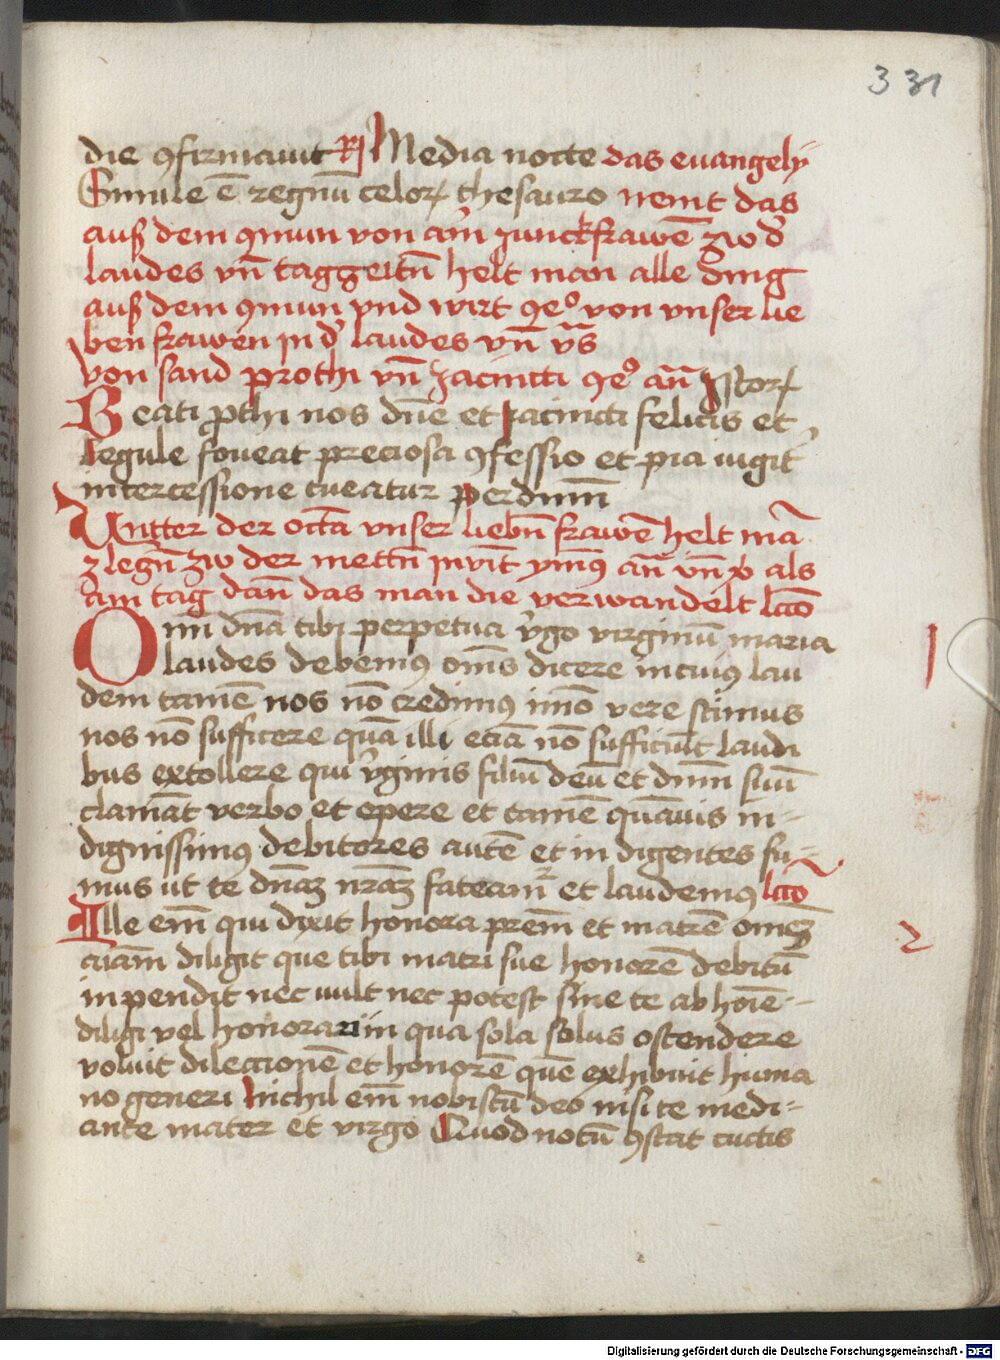 331
die ꝯfirmauit R Media nocte das euangely
Simile ē regnū celoꝝ thesauro nemt das
auß dem ꝯmun von aīn junckfrawē zw d̕
laudes vn̄ taggzeitn̄ helt man alle ding
auß dem ꝯmun vnd wirt ꝯeº von vnser lie
ben frawen in d̕ laudes vn̄ vs̄
von sand prothi vn̄ Jacincti ꝯeº an̄ Istoꝝ
Beati ꝓthi nos dn̄e et Jacincti felicis et
regule foueat preciosa ꝯfessio et pia iugit̕
intercessione tueatur Per dnm̄
Vntter der octā vnser liebn̄ frawē helt mā
z legn̄ zw der mettn̄ invit̄ ymꝰ an̄ vn̄ als
am tag dan̄ das man die verwandelt lcc̄o
Omī dn̄a tibi perpetua v̕go virginū maria
laudes debemꝰ om̄s dicere in cuiꝰ lau
dem tamē nos nō credimꝰ imō vere scimus
nos nō sufficere quā illi eciā nō sufficiūt laudi
bus extollere qui v̕ginis filiū deū et dnm̄ suū
clamāt verbo et opere et tamē quāuis in-
dignissimꝰ debitores autē et in digentes su-
mus ut te dn̄aꝫ nr̄aꝫ fateamr et laudemꝰ lcc̄o
Ille em̄ qui dixit honora prem̄ et matrē om̄eꝫ
aīam diligit que tibi matri sue honorē debitū
inpendit nec uult nec potest sine te ab hoīe-
diligi vel honorari in qua sola solus ostendere
voluit dileccionē et honorē quē exhibuit huma
no generi Nichil em̄ nobiscū deo nisi te medi-
ante mater et virgo Quod notū ꝯstat cūctis
1
2
Digitalisierung gefördert durch die Deutsche Forschungsgemeinschaft - DFG